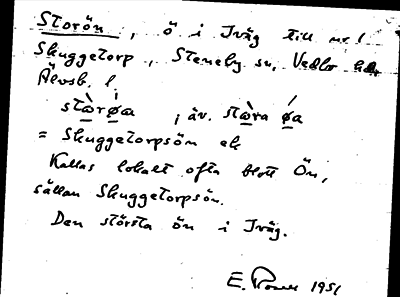 Storön, ö i Iväg till nr 1
Skuggetorp, Steneby sn, Vedbo hd,
Älvsb. l.
stὼrøa, äv. stὼra ǿa
= Skuggetorpsön ek
Kallas lokalt ofta blott Ön,
sällan Skuggetorpsön.
Den största ön i Iväg.
E. 1951